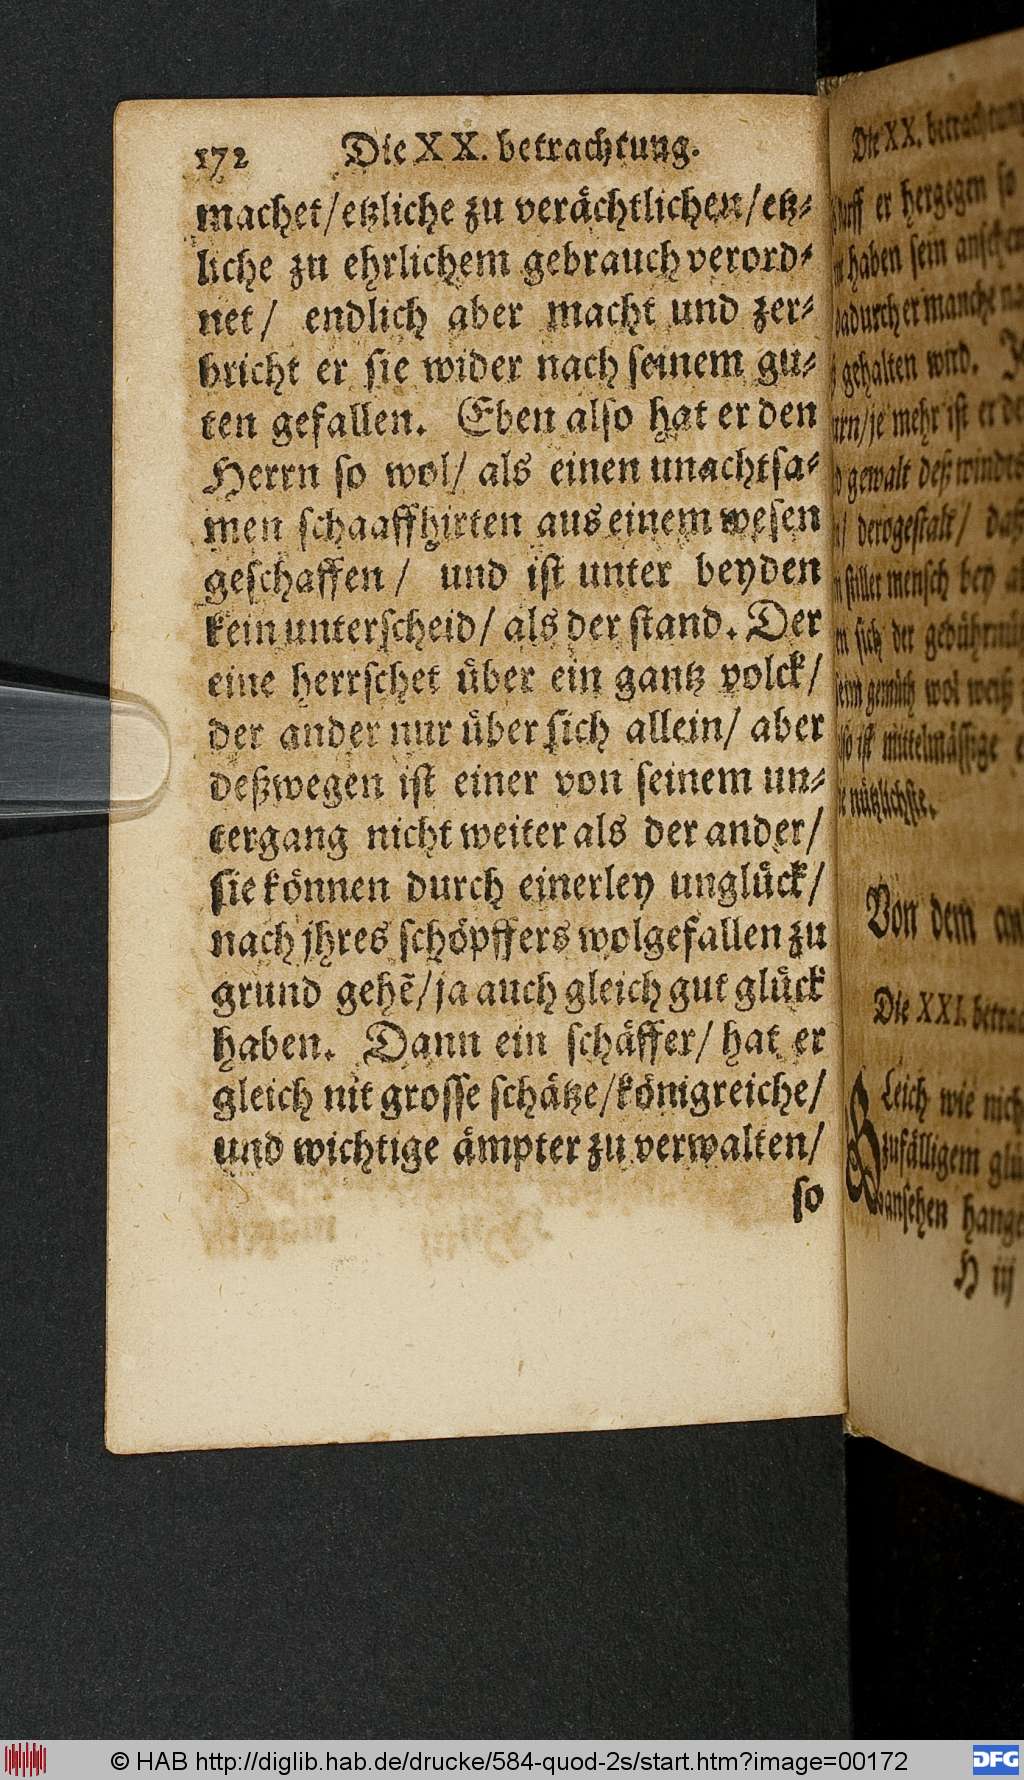 172 Die XX. betrachtung.
machet/etzliche zu verächtlichen/etz-
liche zu ehrlichem gebrauch verord-
net/ endlich aber macht und zer-
bricht er sie wider nach seinem gu-
ten gefallen. Eben also hat er den
Herrn so wol/ als einen unachtsa-
men schaaffhirten aus einem wesen
geschaffen/ und ist unter beyden
kein unterscheid/ als der stand. Der
eine herrschet über ein gantz volck/
der ander nur über sich allein/ aber
deßwegen ist einer von seinem un-
tergang nicht weiter als der ander/
sie können durch einerley unglück/
nach jhres schöpffers wolgefallen zu
grund gehẽ/ja auch gleich gut glück
haben. Dann ein schäffer/ hat er
gleich nit grosse schätze/königreiche/
und wichtige ämpter zu verwalten/
so
Die XX. betrachtung
er hergegen so
haben sein
dadurch er manche
gehalten wird.
/je mehr ist er
gewalt deß
/ derogestalt/
stiller mensch bey
sich der
gemüth wol weiß
ist mittelmässige
nützlichste.
Von dem
Die XXI.
Gleich wie
zufälligem
ansehen
H iij
© HAB http://diglib.hab.de/drucke/584-quod-2s/start.htm?image=00172
DFG